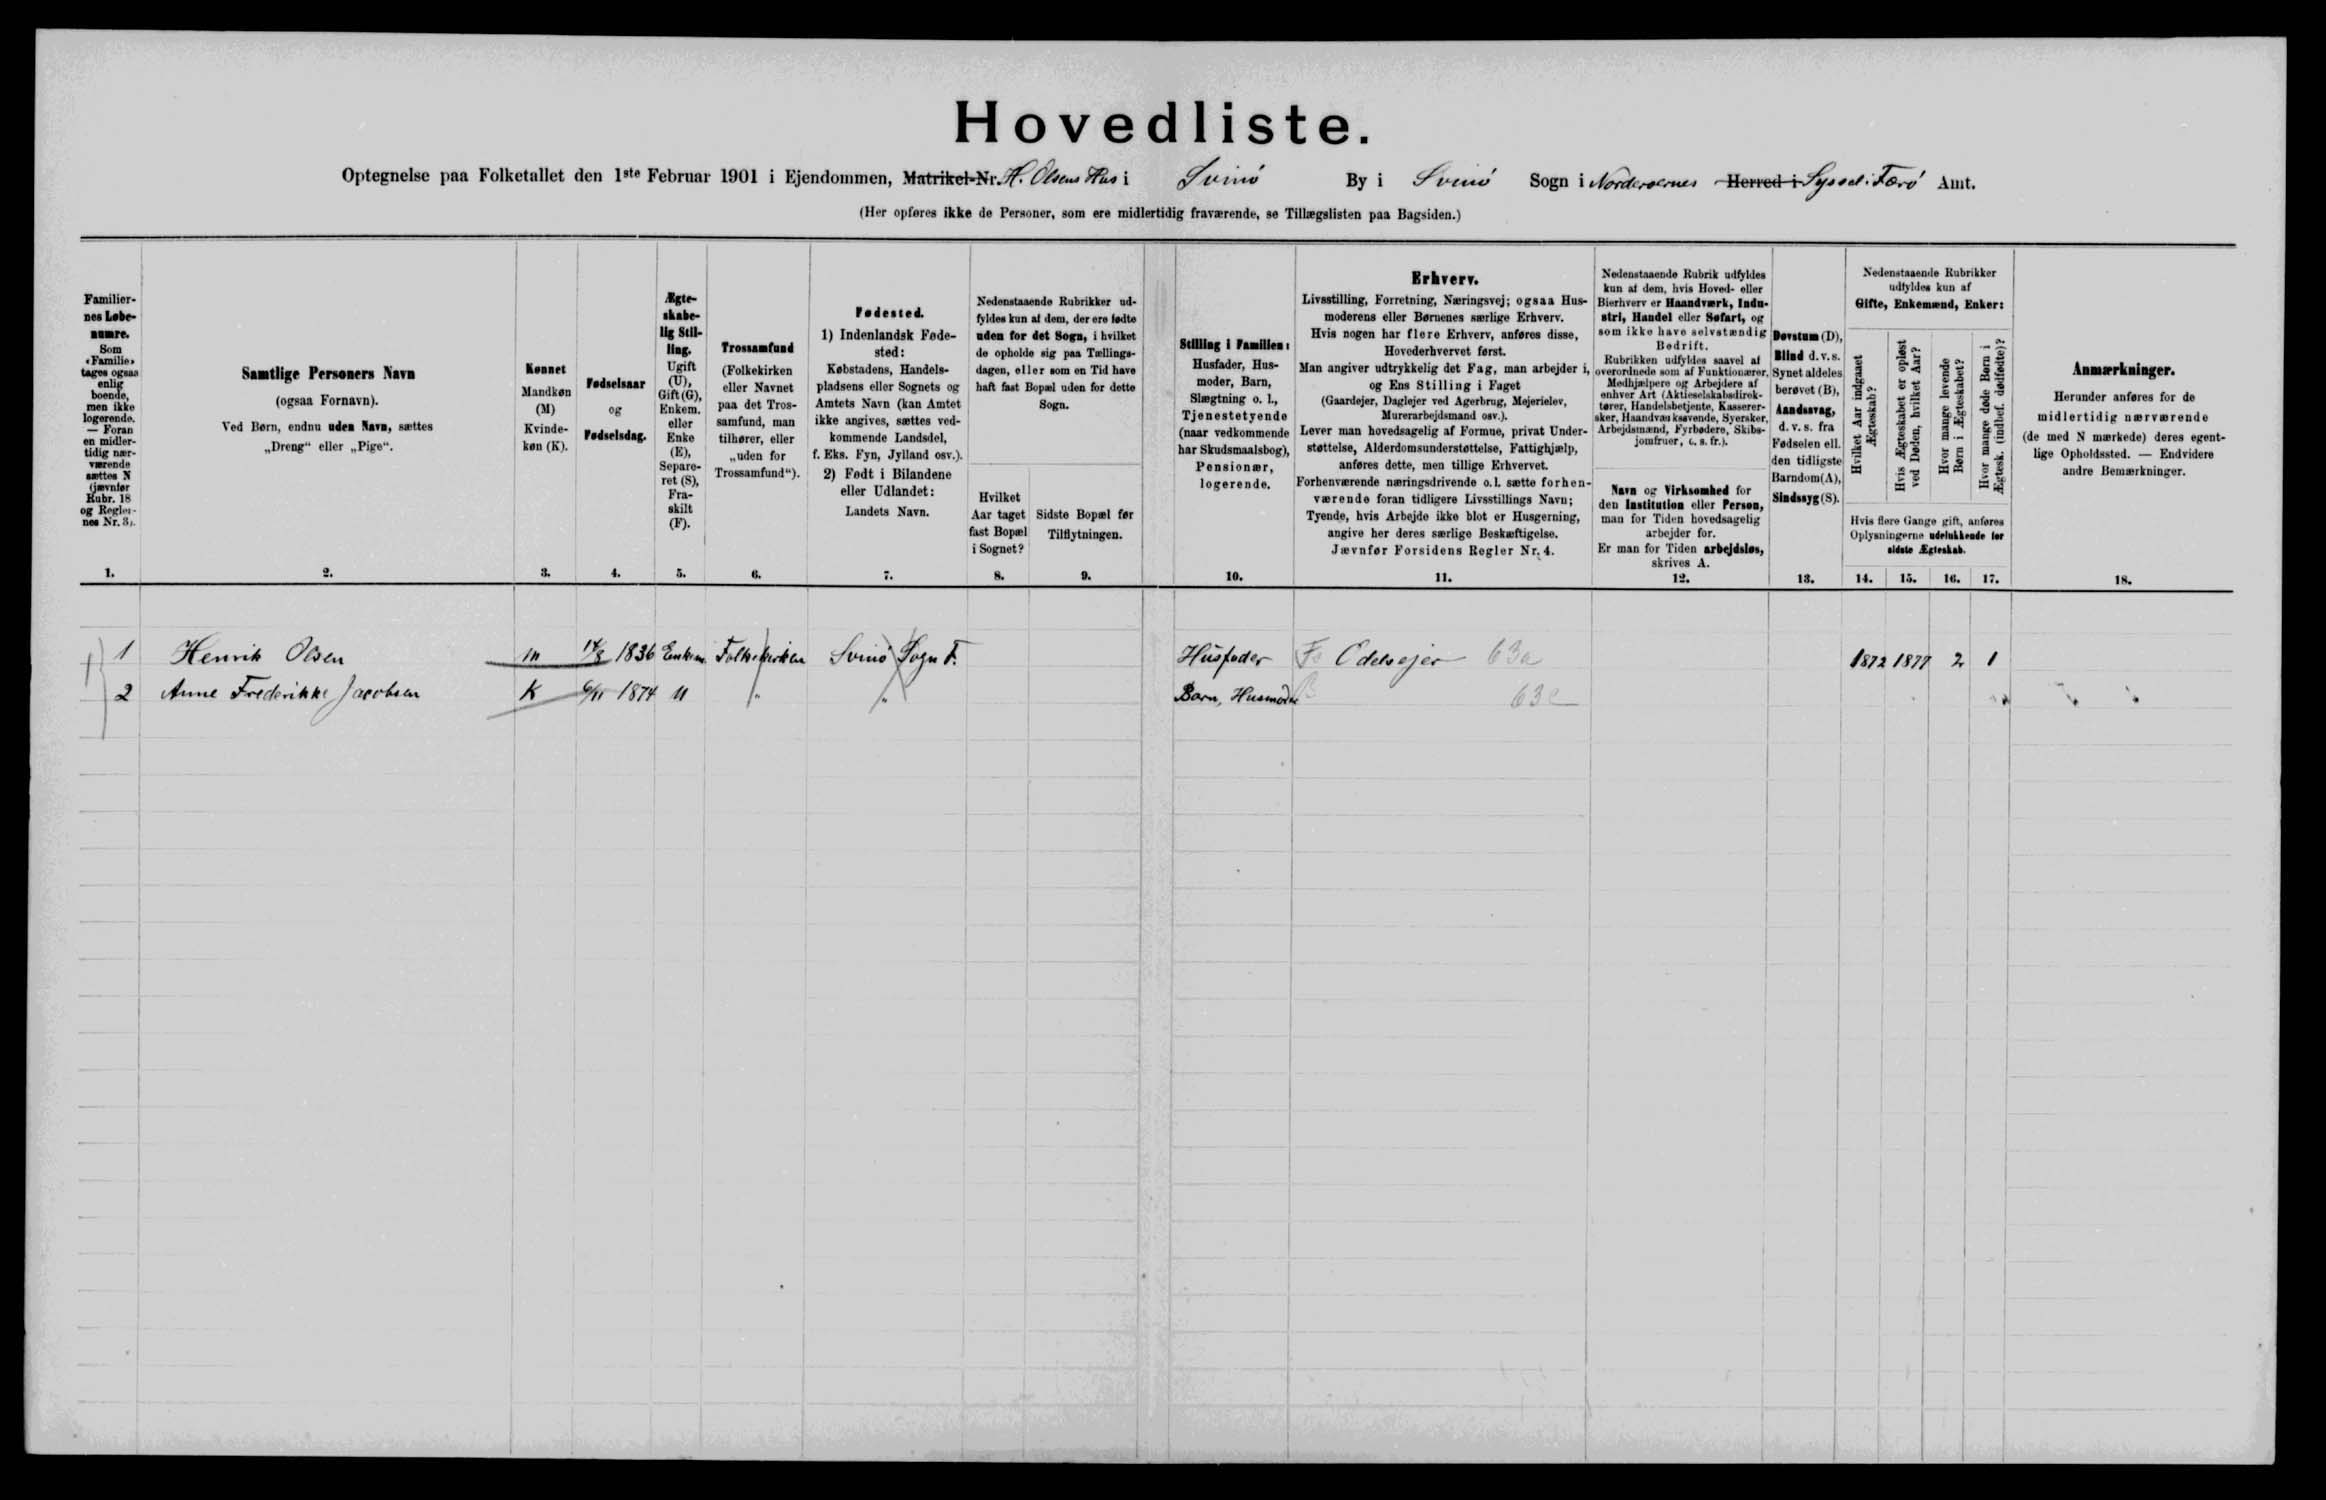 Hovedliste.
Optegnelse paa Folketallet den 1ste Februar 1901 i Ejendommen, Matrikel-Nr. H. Olsens Hus i Svinö By i Svinö Sogn i Norderoernes Herred i Syssel i Færö Amt.
(Her opføres ikke de Personer, som ere midlertidig fraværende, se Tillægslisten paa Bagsiden.)
Familier-
nes Løbe-
numre.
Som
«Familie»
tages ogsaa
enlig
boende,
men ikke
logerende.
— Foran
en midler-
tidig nær-
værende
sættes N
(jævnfør
Rubr. 18
og Regler-
nes Nr. 3).
1.
Samtlige Personers Navn
(ogsaa Fornavn).
Ved Børn, endnu uden Navn, sættes
„Dreng“ eller „Pige“.
2.
Kønnet
Mandkøn
(M)
Kvinde-
køn (K).
3.
Fødselsaar
og
Fødselsdag.
4.
Ægte-
skabe-
lig Stil-
ling.
Ugift
(U),
Gift (G),
Enkem.
eller
Enke
(E),
Separe-
ret (S),
Fra-
skilt
(F).
5.
Trossamfund
(Folkekirken
eller Navnet
paa det Tros-
samfund, man
tilhører, eller
„uden for
Trossamfund“).
6.
Fødested.
1) Indenlandsk Føde-
sted:
Købstadens, Handels-
pladsens eller Sognets og
Amtets Navn (kan Amtet
ikke angives, sættes ved-
kommende Landsdel,
f. Eks. Fyn, Jylland osv.).
2) Født i Bilandene
eller Udlandet:
Landets Navn.
7.
Nedenstaaende Rubrikker ud-
fyldes kun af dem, der ere fødte
uden for det Sogn, i hvilket
de opholde sig paa Tællings-
dagen, eller som en Tid have
haft fast Bopæl uden for dette
Sogn.
Hvilket
Aar taget
fast Bopæl
i Sognet?
8.
Sidste Bopæl før
Tilflytningen.
9.
Stilling i Familien:
Husfader, Hus-
moder, Barn,
Slægtning o. l.,
Tjenestetyende
(naar vedkommende
har Skudsmaalsbog),
Pensionær,
logerende.
10.
Erhverv.
Livsstilling, Forretning, Næringsvej; ogsaa Hus-
moderens eller Børnenes særlige Erhverv.
Hvis nogen har flere Erhverv, anføres disse,
Hovederhvervet først.
Man angiver udtrykkelig det Fag, man arbejder i,
og Ens Stilling i Faget
(Gaardejer, Daglejer ved Agerbrug, Mejerielev,
Murerarbejdsmand osv.).
Lever man hovedsagelig af Formue, privat Under-
støttelse, Alderdomsunderstøttelse, Fattighjælp,
anføres dette, men tillige Erhvervet.
Forhenværende næringsdrivende o.l. sætte forhen-
værende foran tidligere Livsstillings Navn;
Tyende, hvis Arbejde ikke blot er Husgerning,
angive her deres særlige Beskæftigelse.
Jævnfør Forsidens Regler Nr. 4.
11.
Nedenstaaende Rubrik udfyldes
kun af dem, hvis Hoved- eller
Bierhverv er Haandværk, Indu-
stri, Handel eller Søfart, og
som ikke have selvstændig
Bedrift.
Rubrikken udfyldes saavel af
overordnede som af Funktionærer,
Medhjælpere og Arbejdere af
enhver Art (Aktieselskabsdirek-
tører, Handelsbetjente, Kasserer-
sker, Haandværksøvende, Syersker,
Arbejdsmænd, Fyrbødere, Skibs-
jomfruer, o. s. fr.).
Navn og Virksomhed for
den Institution eller Person,
man for Tiden hovedsagelig
arbejder for.
Er man for Tiden arbejdsløs,
skrives A.
12.
Døvstum (D),
Blind d. v. s.
Synet aldeles
berøvet (B),
Aandssvag,
d. v. s. fra
Fødselen ell.
den tidligste
Barndom (A),
Sindssyg (S).
13.
Nedenstaaende Rubrikker
udfyldes kun af
Gifte, Enkemænd, Enker:
Hvilket Aar indgaaet
Ægteskab?
Hvis Ægteskabet er opløst
ved Døden, hvilket Aar?
Hvor mange levende
Børn i Ægteskabet?
Hvor mange døde Børn i
Ægtesk. (indbef. dødfødte)?
Hvis flere Gange gift, anføres
Oplysningerne udelukkende for
sidste Ægteskab.
14. 15. 16. 17.
Anmærkninger.
Herunder anføres for de
midlertidig nærværende
(de med N mærkede) deres egent-
lige Opholdssted. — Endvidere
andre Bemærkninger.
18.
1 Henrik Olsen m 14/8 1836 Enkem. Folkekirken Svinö Sogn F. Husfader Odelsejer 63a 1872 1877 2 1
2 Anne Frederikke Jacobsen K 6/11 1874 U " " Barn, Husmoder 63c